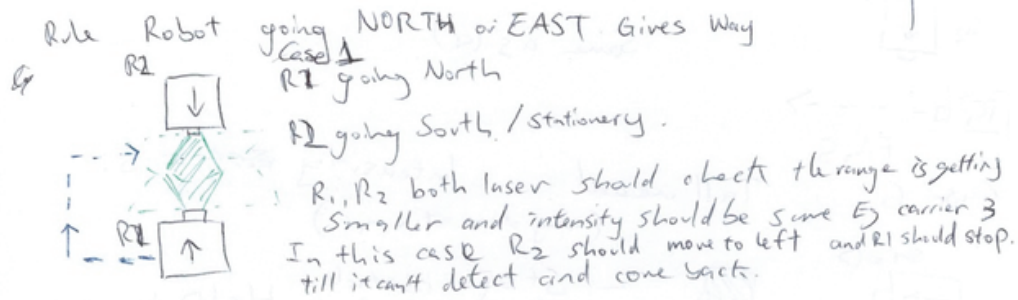 Rule Robot going NORTH or EAST Gives Way
Case 1
R2
R1 going North
R2 going South / stationery.
R1, R2 both laser should check the range is getting
smaller and intensity should be same Eg carrier 3
R1
In this case R2 should move to left and R1 should stop.
till it can't detect and come back.